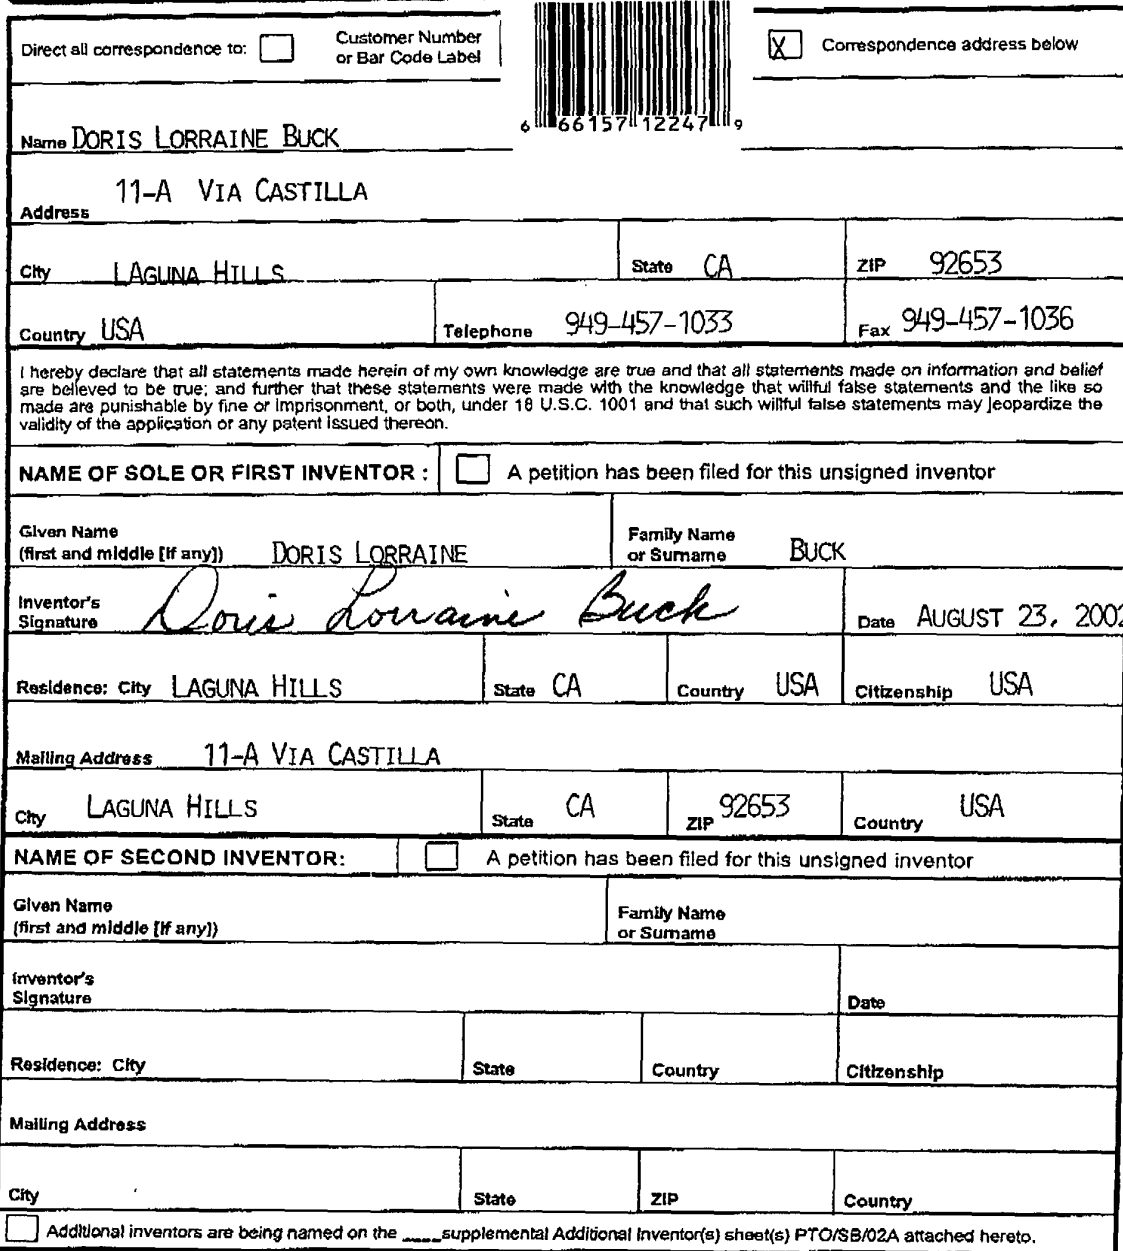 Direct all correspondence to: Customer Number or Bar Code Label X Correspondence address below
6 66157 12247 9
Name DORIS LORRAINE BUCK
Address 11-A VIA CASTILLA
City LAGUNA HILLS State CA ZIP 92653
Country USA Telephone 949-457-1033 Fax 949-457-1036
I hereby declare that all statements made herein of my own knowledge are true and that all statements made on information and belief
are believed to be true; and further that these statements were made with the knowledge that willful false statements and the like so
made are punishable by fine or imprisonment, or both, under 18 U.S.C. 1001 and that such willful false statements may jeopardize the
validity of the application or any patent issued thereon.
NAME OF SOLE OR FIRST INVENTOR : A petition has been filed for this unsigned inventor
Given Name (first and middle [if any]) DORIS LORRAINE Family Name or Surname BUCK
Inventor's Signature Doris Lorraine Buck Date AUGUST 23, 2002
Residence: City LAGUNA HILLS State CA Country USA Citizenship USA
Mailing Address 11-A VIA CASTILLA
City LAGUNA HILLS State CA ZIP 92653 Country USA
NAME OF SECOND INVENTOR: A petition has been filed for this unsigned inventor
Given Name (first and middle [if any]) Family Name or Surname
Inventor's Signature Date
Residence: City State Country Citizenship
Mailing Address
City State ZIP Country
Additional inventors are being named on the ____supplemental Additional Inventor(s) sheet(s) PTO/SB/02A attached hereto.